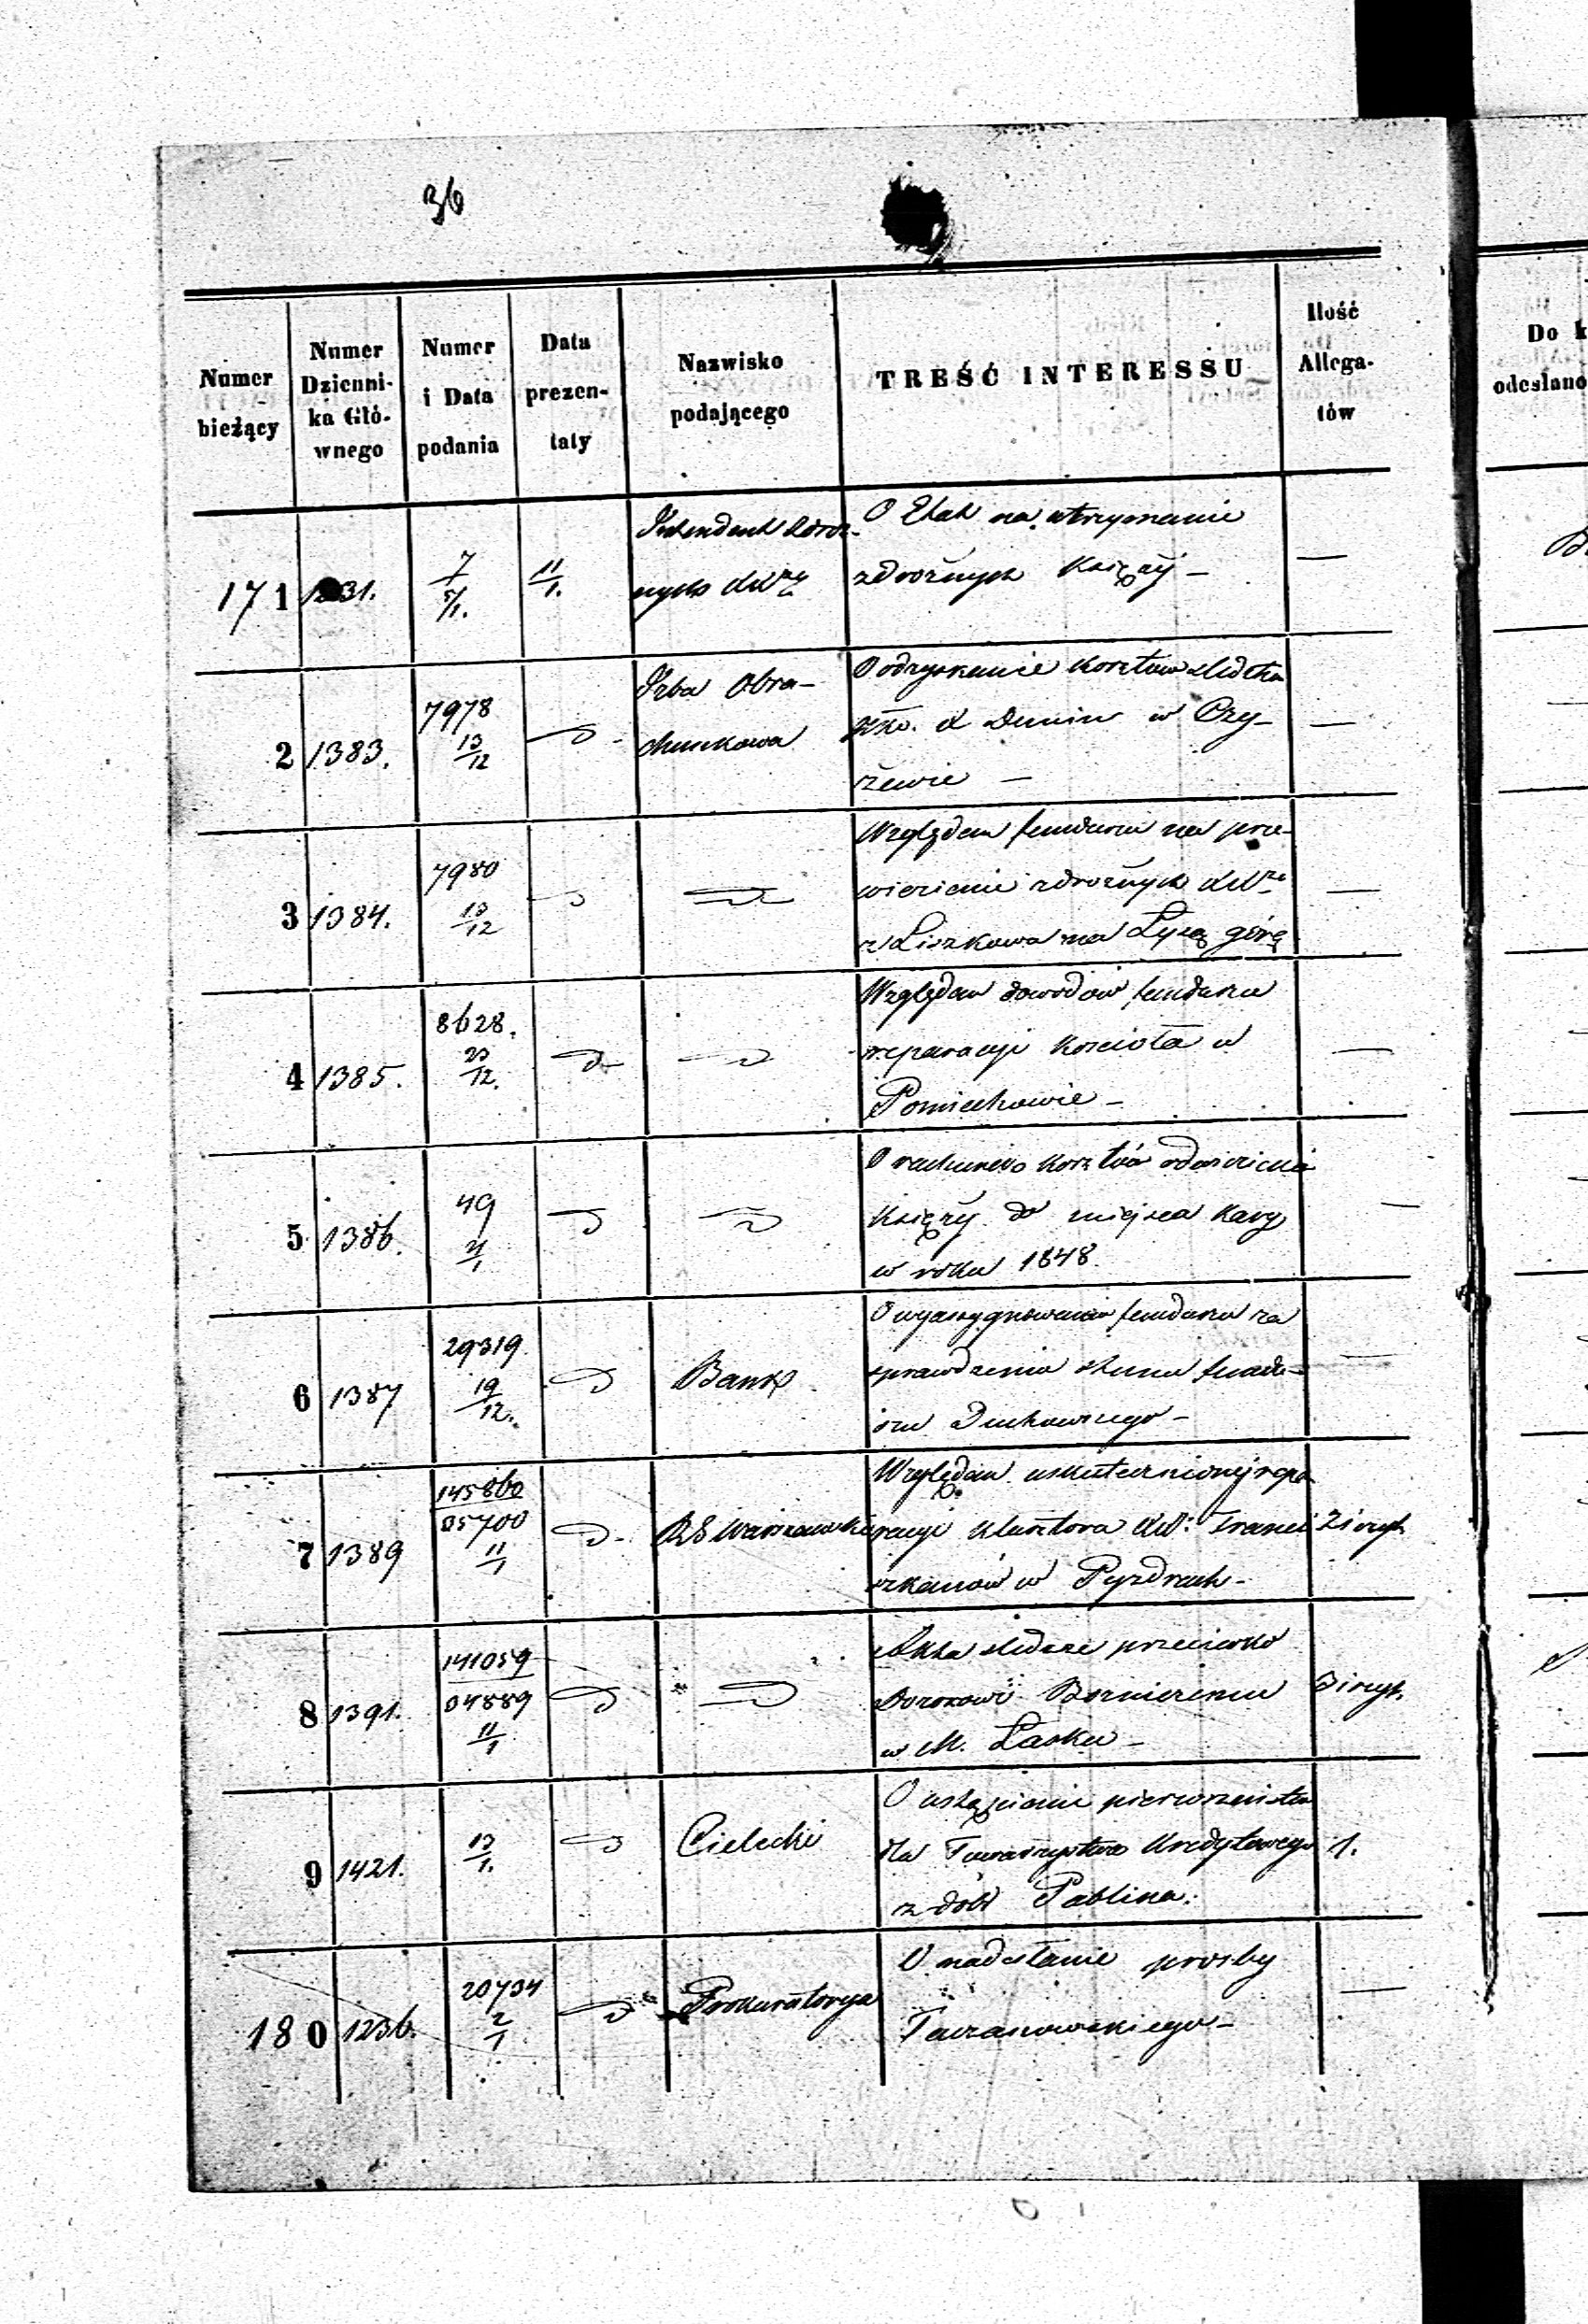 36
Numer bieżący
Numer Dzienni-ka Głó-wnego
Numer i Data podania
Data prezen-taty
Nazwisko podającego
TREŚĆ INTERESSU
Ilość Allega-tów
Do k
odesłano
171 31. 7 5/1. 11/1.
Intendent zdroż-
nych XX
O Etat na utrzymanie
zdrożnych Księży —
2 1383. 7978 13/12
Izba Obra-
chunkowa
O odzyskanie kosztów
X Dunin w
żewie —
3 1384. 7980 13/12
Względem funduszu na prze-
wiezienie zdrożnych
z Liszkowa na Łysą górę
4 1385. 8628. 23/12.
Względem dowodów funduszu
reparacyi Kościoła w
Pomiechowie —
5 1386. 49
O rachunek kosztów odwiezienia
Księży do miejsca kary
w roku 1848.
6 1387 29319. 19/12.
Bank
O wyassygnowanie funduszu za
sprawdzenie
Duchownego —
7 1389 145860 / 85700 11/1
R. G. Warszawski
Względem uskutecznionej repa
racyi klasztora XX. Franci
szkanów w Pyzdrach —
8 1391. 141059 / 84889 11/1
Akta śledcze przeciwko
Dozorowi Bożniczemu
w M. Łasku —
9 1421. 13/1.
Cielecki
O ustąpienie pierwszeństwa
dla Towarzystwa Kredytowego
z dóbr Pablina.
1.
180 1236. 20734 2/1
Prokuratorya
O nadesłanie prośby
Taczanowskiego —